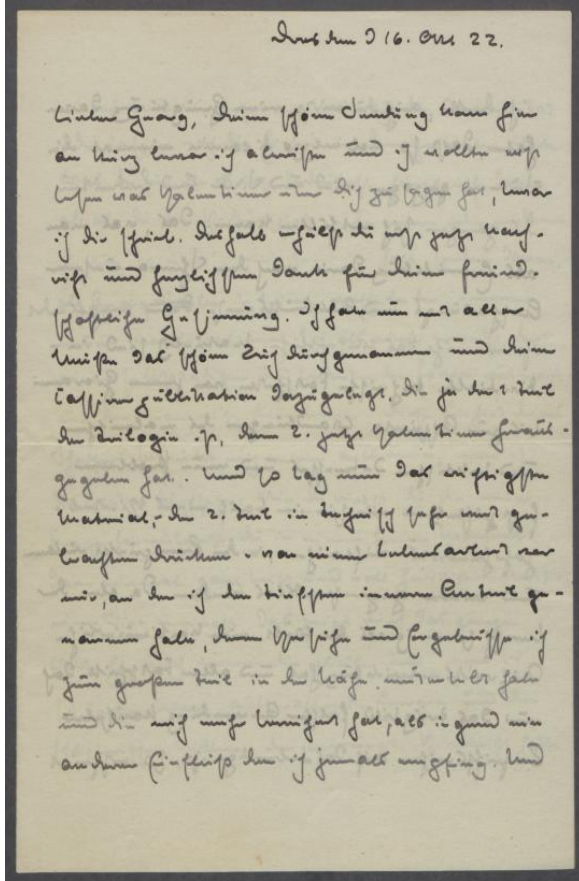 Dresden d 16. Okt 22.
Lieber Georg, Deine schöne Sendung kam hier
an kurz bevor ich abreiste und ich wollte erst
lesen was Valentiner über Dich zu sagen hat, bevor
ich Dir schrieb. Deshalb erhälst du erst jetzt Nach-
richt und herzlichsten Dank für Deine freund-
schaftliche Gesinnung. Ich habe nun mit aller
Muße das schöne Buch durchgenommen und Deine
Cassirerpublikation dazugelegt, die ja der 1 Teil
der Trilogie ist, deren 2. jetzt Valentiner heraus-
gegeben hat. Und so lag nun das wichtigste
Material, - der 2. Teil in technisch sehr gut ge-
brachten Drucken - von einer Lebensarbeit vor
mir, an der ich den tiefsten inneren Anteil ge-
nommen habe, deren Versuche und Ergebnisse ich
zum großen Teil in der Nähe miterlebt habe
und die mich mehr bereichert hat, als irgend ein
anderer Einfluß den ich jemals empfing. Und